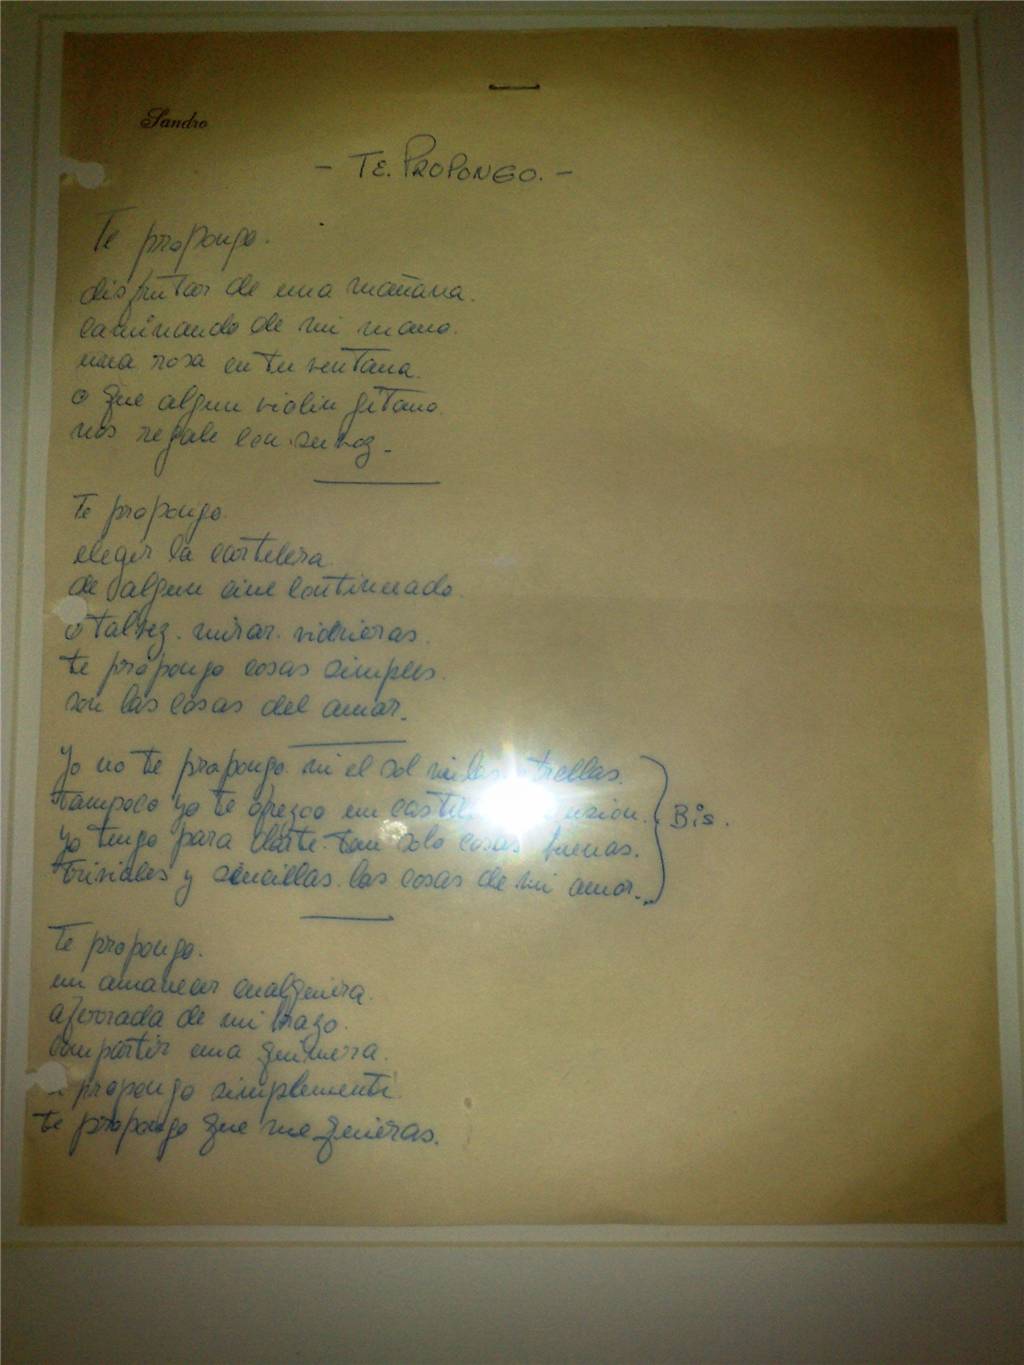 Sandro
- TE. PROPONGO. -
Te propongo.
disfrutar de una mañana.
caminando de mi mano.
una rosa en tu ventana.
o que algun violin gitano.
nos regale con su voz.-
Te propongo.
elegir la cartelera.
de algun cine continuado.
o talvez. mirar. vidrieras.
te propongo cosas simples.
son las cosas del amor.
Yo no te propongo. ni el sol ni las estrellas.
tampoco yo te ofrezco un
yo tengo para darte. tan solo cosas buenas.
triviales y sencillas. las cosas de mi amor...
Bis.
Te propongo.
un amanecer cualquiera.
aferrada de mi brazo.
compartir una quimera.
propongo simplemente.
te propongo que me quieras.